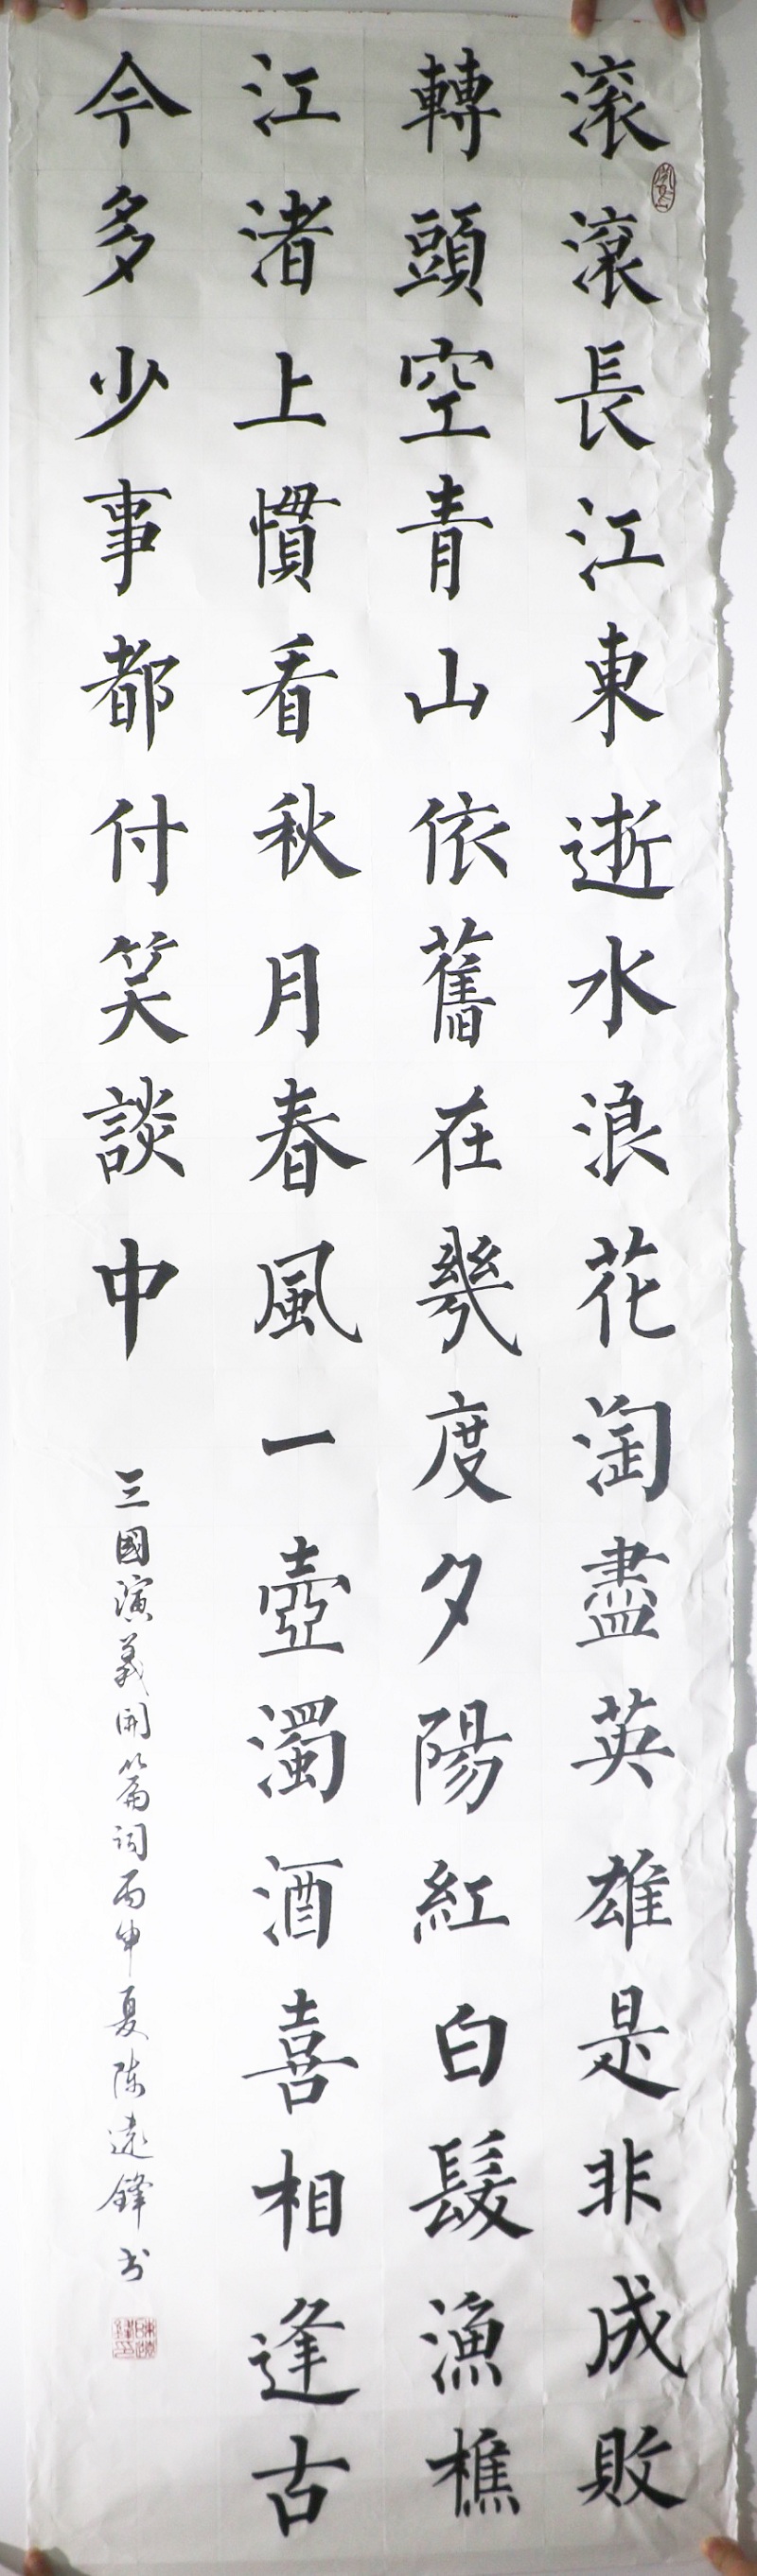 滚滾長江東逝水浪花淘盡英雄是非成敗
轉頭空青山依舊在幾度夕陽紅白髮漁樵
江渚上慣看秋月春風一壺濁酒喜相逢古
今多少事都付笑談中
三國演义開篇词丙申夏陈遠鋒书